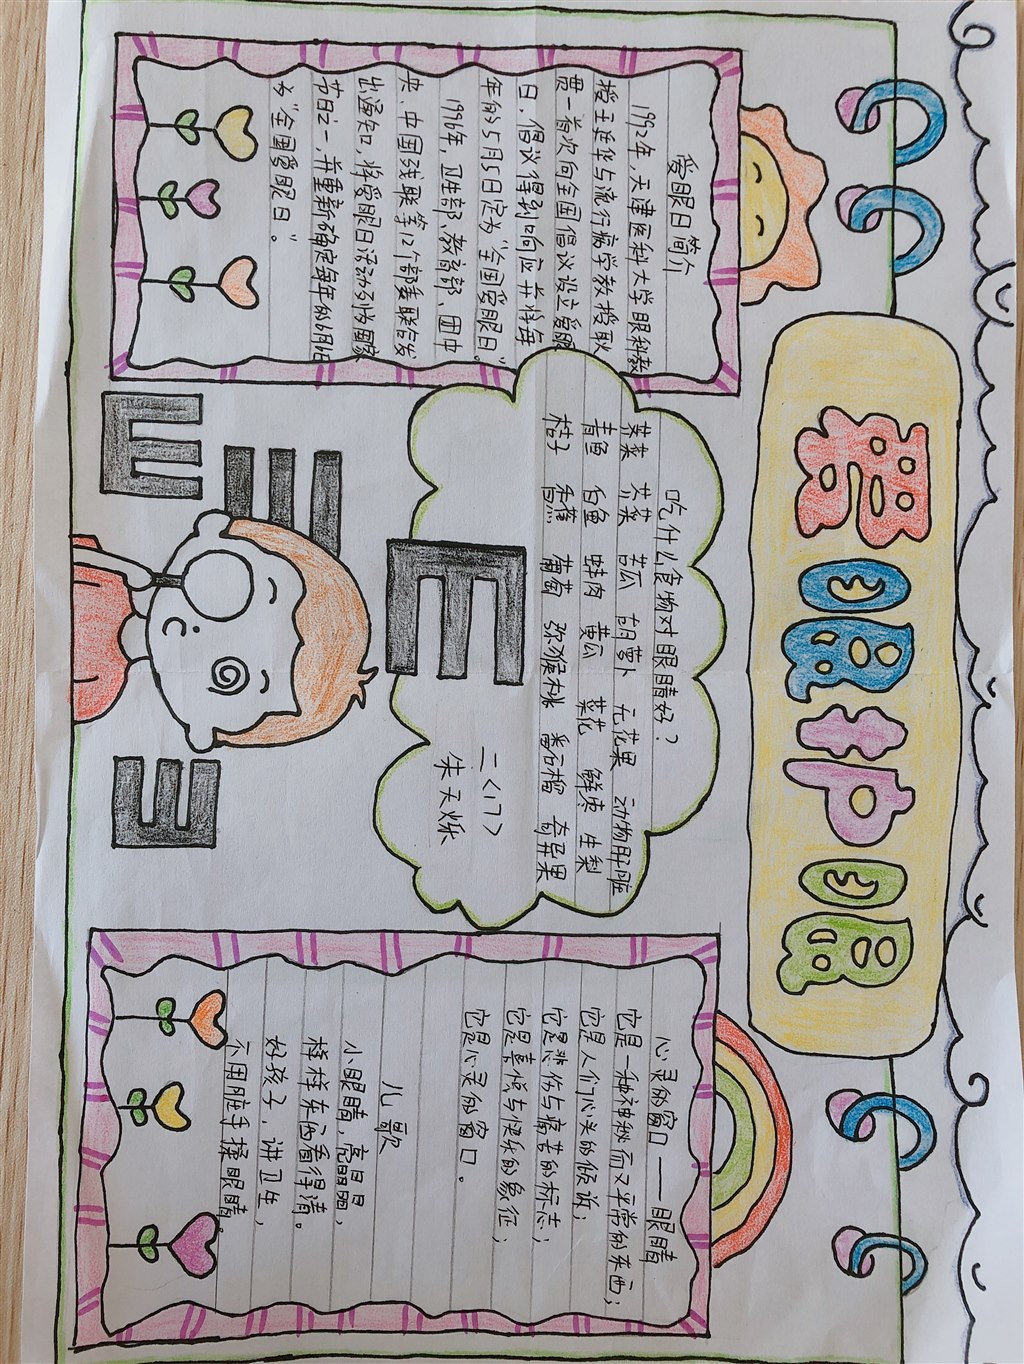 爱眼护眼
爱眼日简介
1992年,天津医科大学眼科教
授王延华与流行病学教授耿
贯一首次向全国倡议设立爱眼
日,倡议得到响应并将每
年的5月5日定为“全国爱眼日”。
1996年,卫生部、教育部、团中
央、中国残联等12个部委联合发
出通知,将爱眼日活动列为国家
节日之一,并重新确定每年的6月6日
为“全国爱眼日”。
吃什么食物对眼睛好?
荠菜 芥菜 苦瓜 胡萝卜 无花果 动物肝脏
青鱼 白鱼 蚌肉 黄瓜 菜花 鲜枣 生梨
桔子 香蕉 葡萄 弥猴桃 番石榴 奇异果
二<17>
朱天烁
心灵的窗口——眼睛
它是一种神秘而又平常的东西;
它是人们心头的倾诉;
它是悲伤与痛苦的标志;
它是喜悦与快乐的象征;
它是心灵的窗口。
儿歌
小眼睛,亮晶晶,
样样东西看得清。
好孩子,讲卫生,
不用脏手揉眼睛。
E
E
E
E